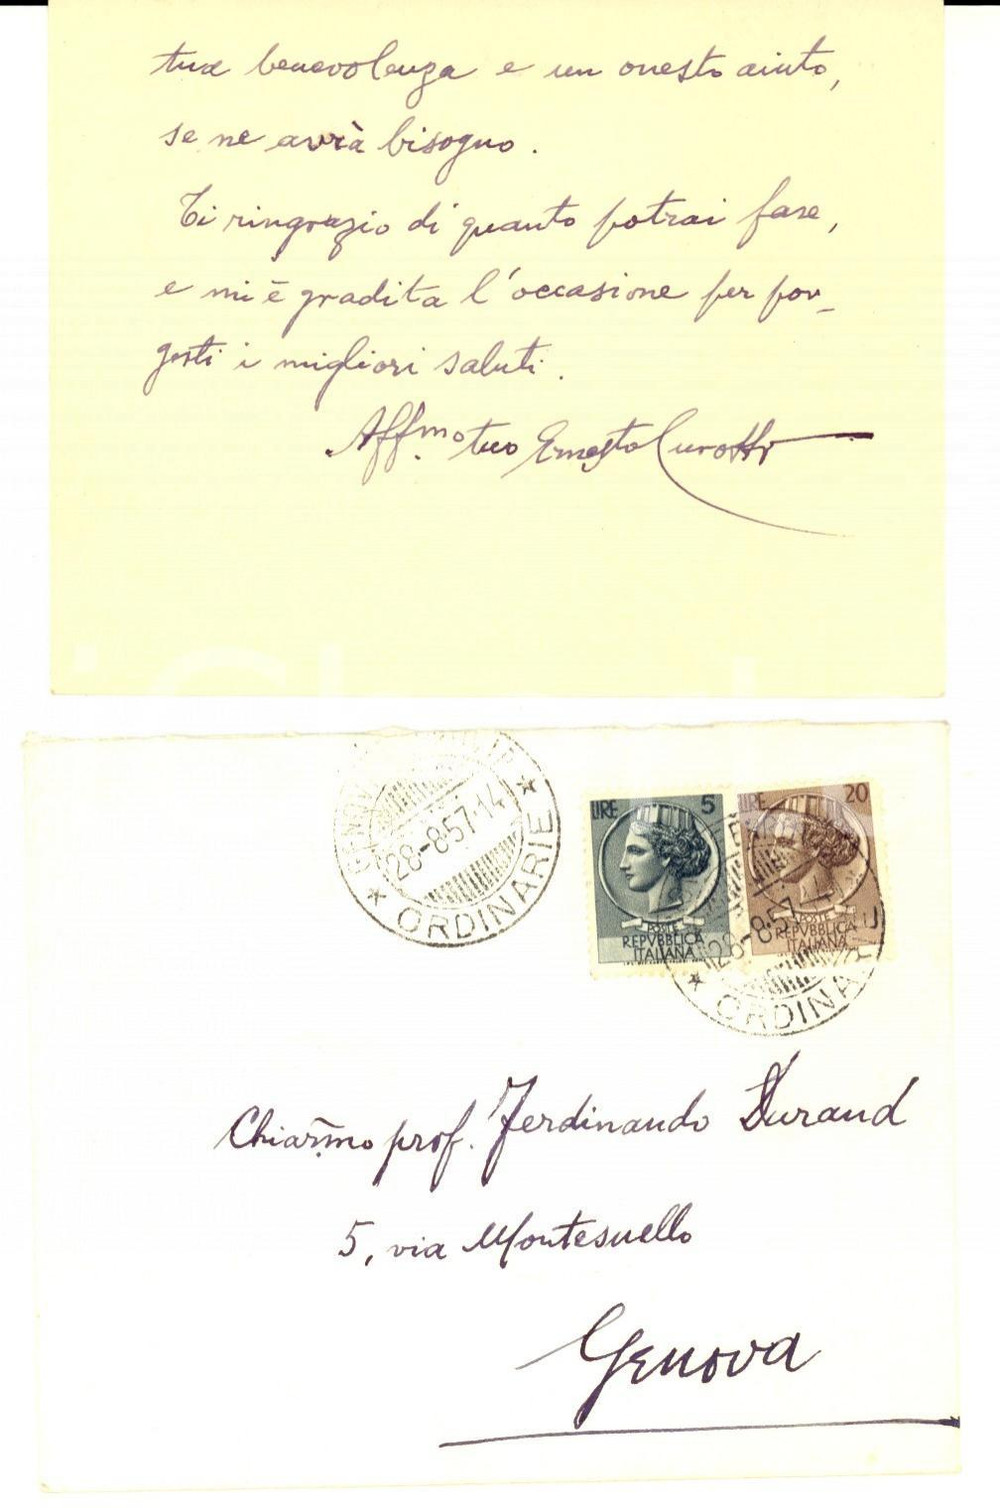 tua benevolenza e un onesto aiuto,
se ne avrà bisogno.
Ti ringrazio di quanto potrai fare,
e mi è gradita l'occasione per por-
gerti i migliori saluti.
Aff.mo tuo Ernesto Curotti
28-8-57·14
ORDINARIE
LIRE 5
POSTE
REPVBBLICA
ITALIANA
LIRE 20
POSTE
REPVBBLICA
ITALIANA
28-8-57
ORDINA
Chiar̄mo prof. Ferdinando Durand
5, via Montesuello
Genova